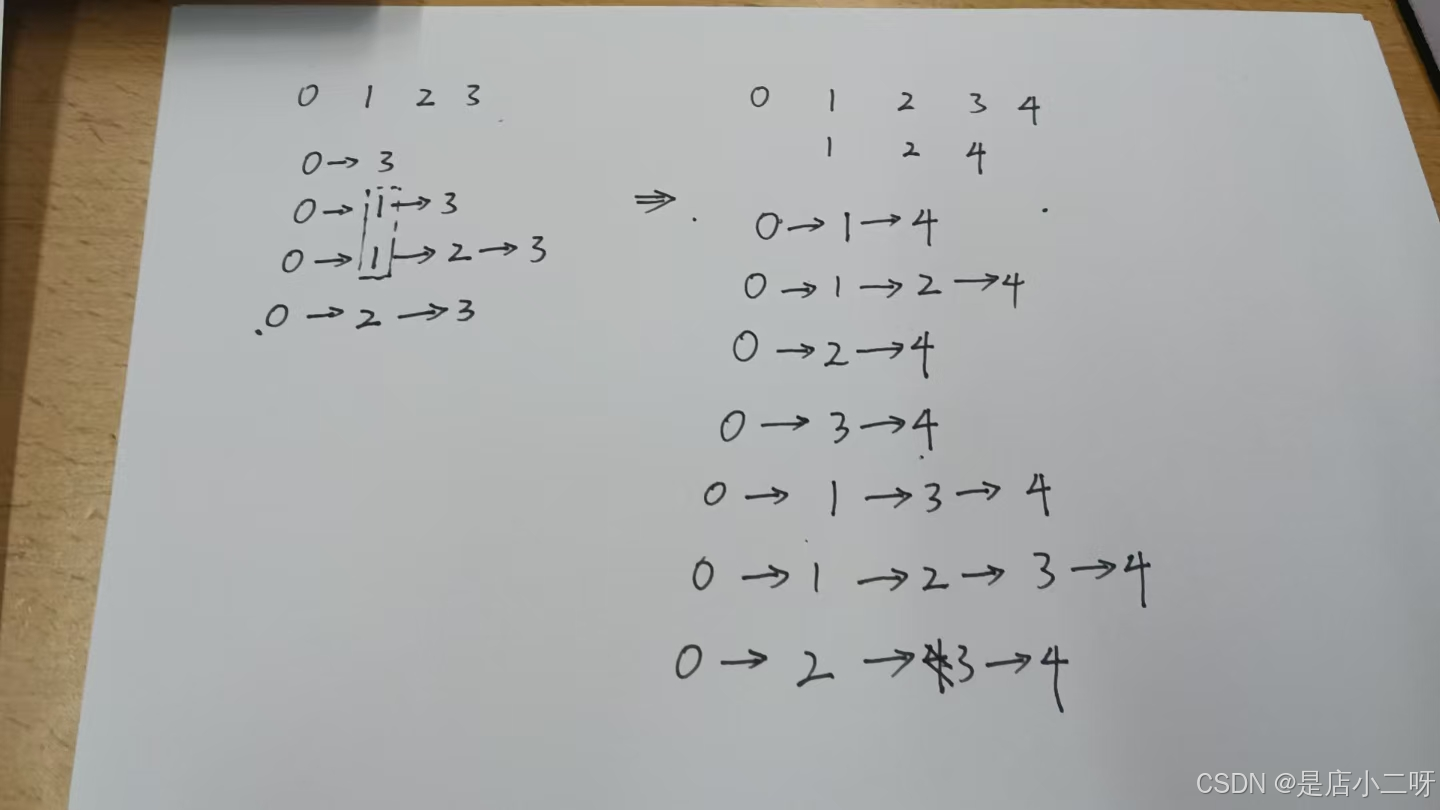 0 1 2 3
0→3
0→1→3
0→1→2→3
0→2→3
⇒
0 1 2 3 4
1 2 4
0→1→4
0→1→2→4
0→2→4
0→3→4
0→1→3→4
0→1→2→3→4
0→2→3→4
CSDN @是店小二呀